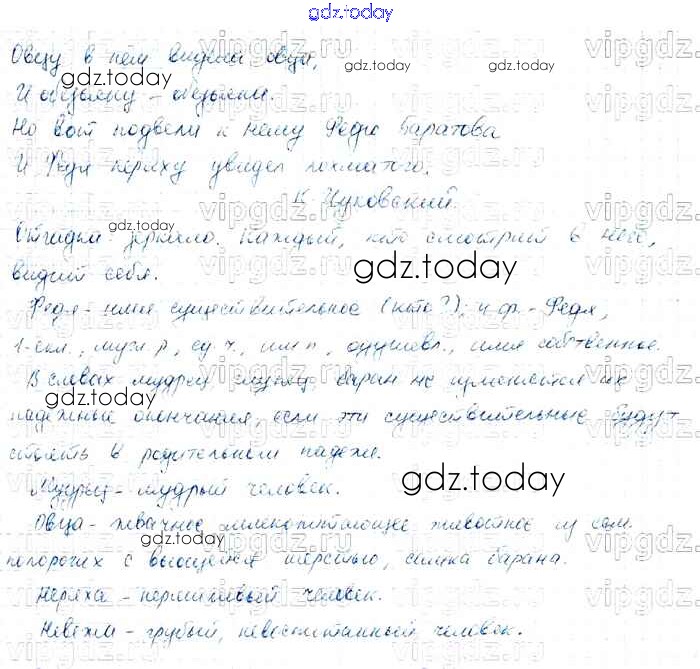 gdz.today
Овцу в нём видит овца,
И обезьяну – обезьяна.
Но вот подвели к нему Федю Баратова
И Федя неряху увидел лохматого.
К. Чуковский.
Отгадка – зеркало. Каждый, кто смотрит в него,
видит себя.
Федя – имя существительное (кто?), н.ф. – Федя,
1-скл., муж. р., ед. ч., им. п., одушевл., имя собственное.
В словах мудрец, баран не изменятся их
падежные окончания, если эти существительные будут
стоять в родительном падеже.
Мудрец – мудрый человек.
Овца – жвачное млекопитающее животное из сем.
полорогих с вьющейся шерстью, самка барана.
Неряха – неряшливый человек.
Невежа – грубый, невоспитанный человек.